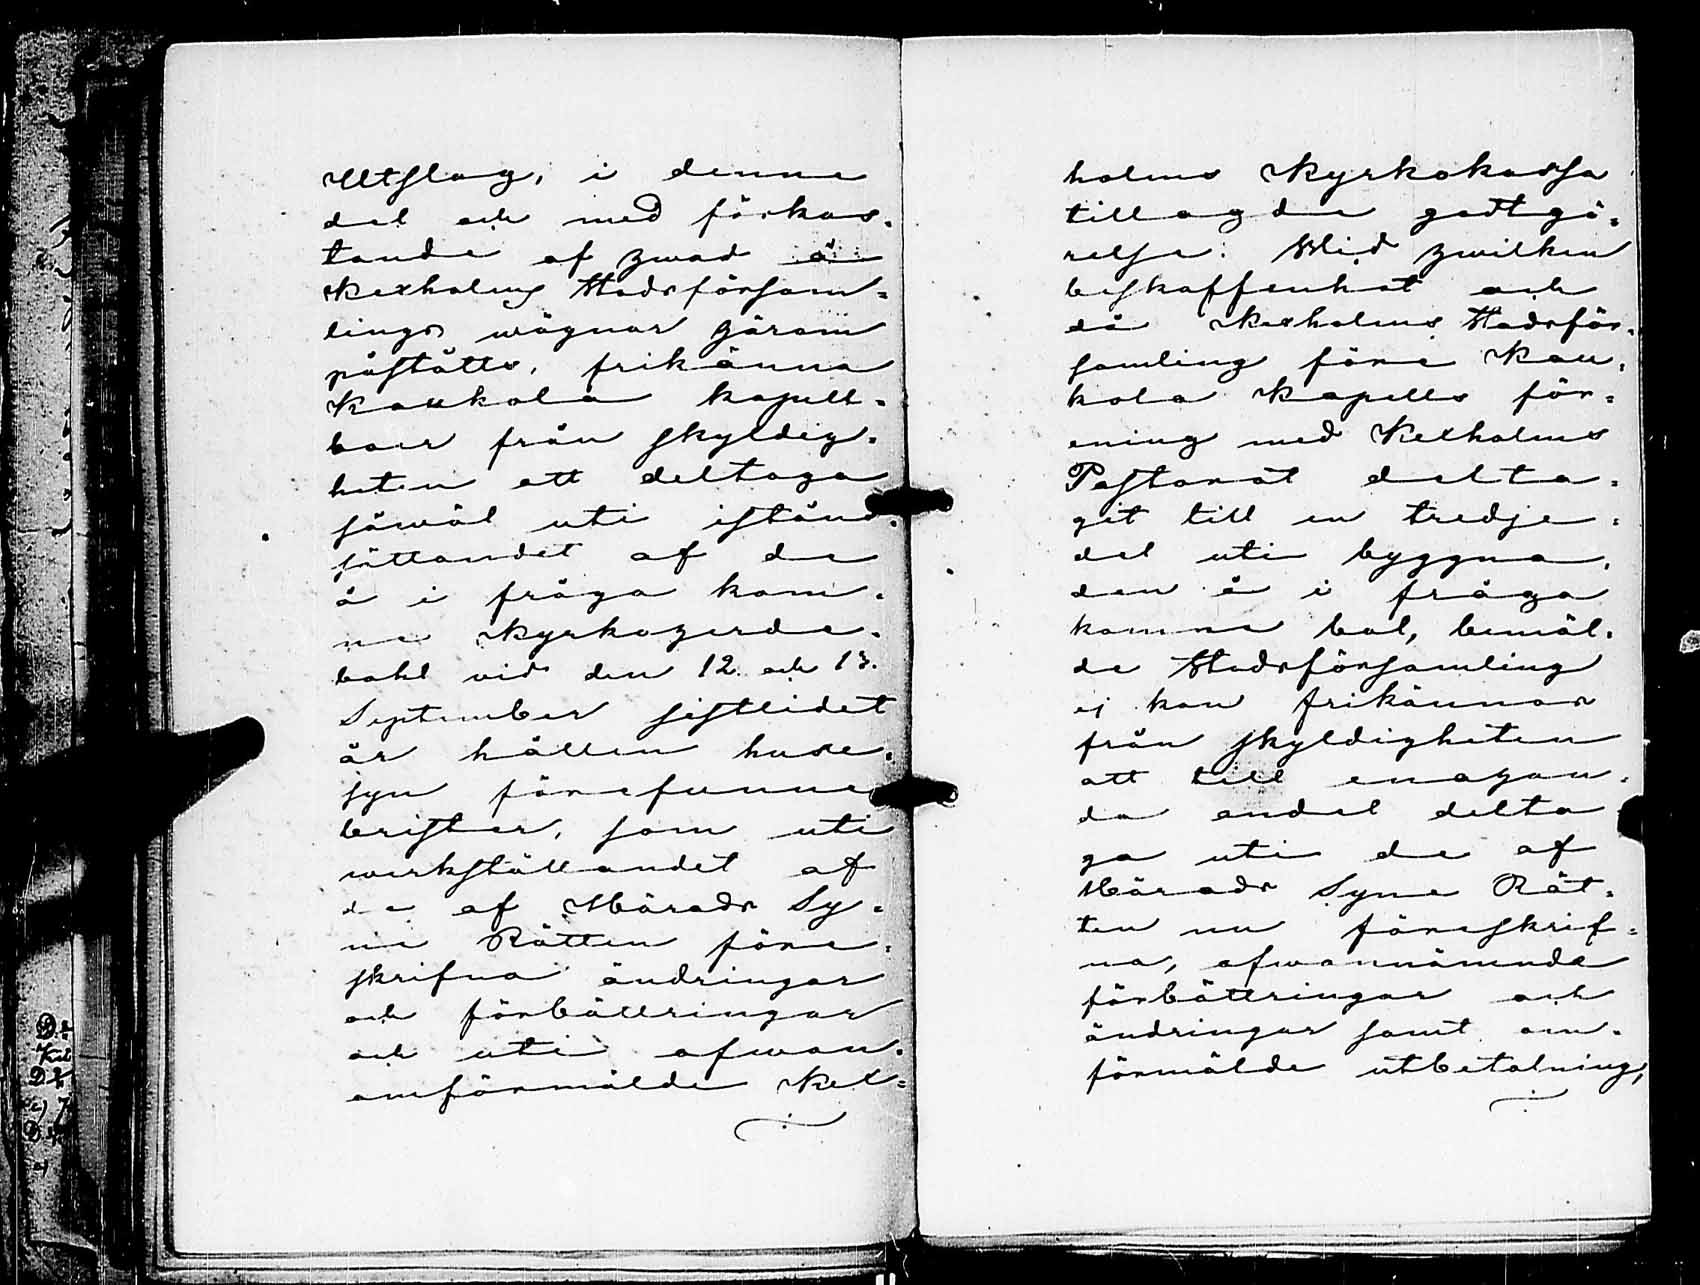 Utslag, i denna
del och med förkas-
tande af hwad å
Kexholms Stadsförsam-
lings wägnar härom
påståtts, frikänna
Kaukola kapell-
boer från skyldig-
heten att deltaga
såwäl uti istånd-
sättandet af de
å i fråga kom-
ne Kyrkoherde-
bohl vid den 12. och 13.
September sistlidet
år hållen huse-
syn förefunne
brister, som uti
werkställandet af
de af Härads Sy-
ne Rätten före-
skrifna ändringar
och förbättringar
och uti ofwan-
omförmälde Kex-
holms Kyrkokassa
tillagde godtgö-
relse. Wid hwilken
beskaffenhet och
då Kexholms Stadsför-
samling före Kau-
kola Kapells för-
ening med Kexholms
Pastorat delta-
git till en tredje-
del uti byggna-
den å i fråga
komne bol, bemäl-
de Stadsförsamling
ej kan frikännas
från skyldigheten
att till enahan-
da andel delta
ga uti de af
Härads Syne Rät-
ten nu föreskrif-
na, ofwannämnda
förbättringar och
ändringar samt om-
förmälde utbetalning,